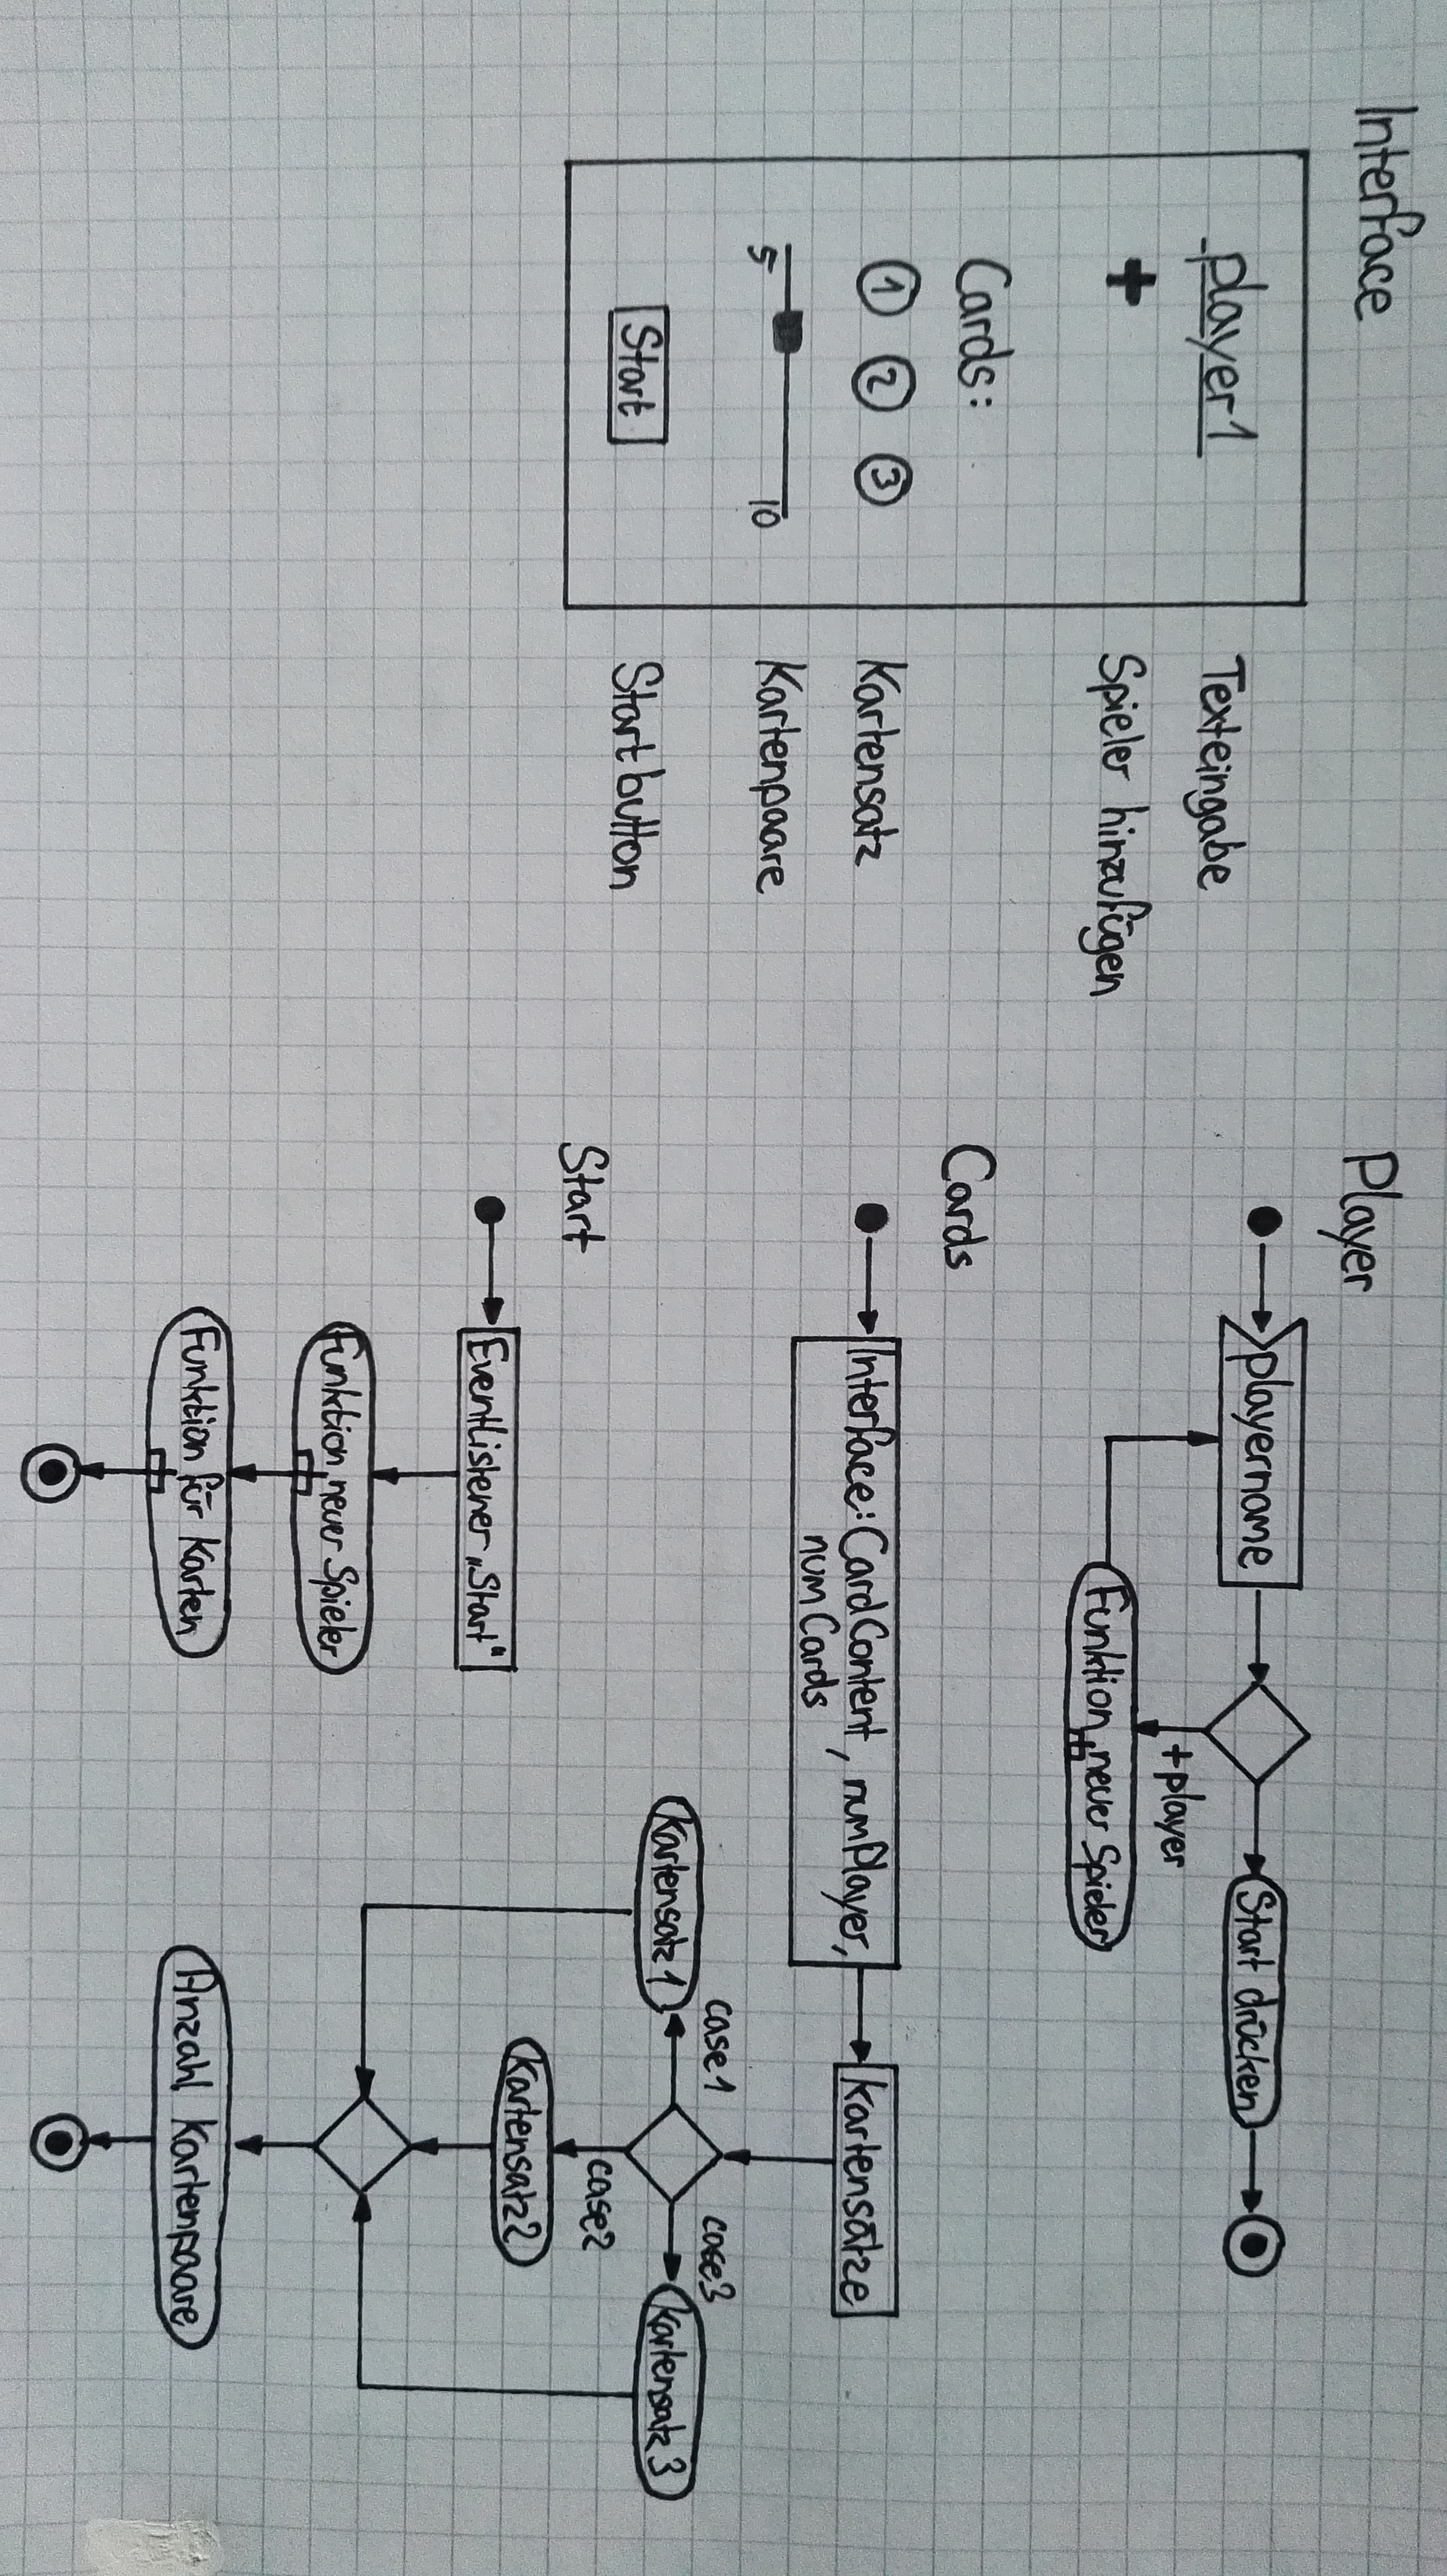 Interface
player1
Texteingabe
+
Spieler hinzufügen
Cards:
1 2 3
Kartensatz
5 10
Kartenpaare
Start
Startbutton
Player
playername
Start drücken
+player
Funktion neuer Spieler
Cards
Interface: CardContent, numPlayer,
numCards
Kartensätze
case1
case3
Kartensatz 1
Kartensatz 3
case2
Kartensatz 2
Anzahl Kartenpaare
Start
EventListener „Start“
Funktion neuer Spieler
Funktion für Karten